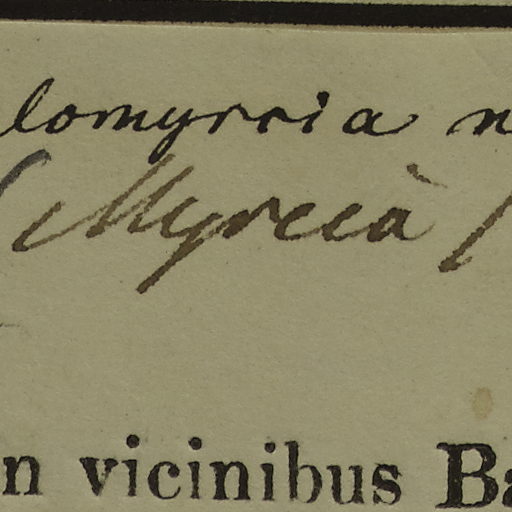 lomyrcia n
Myrcia
n vicinibus Ba